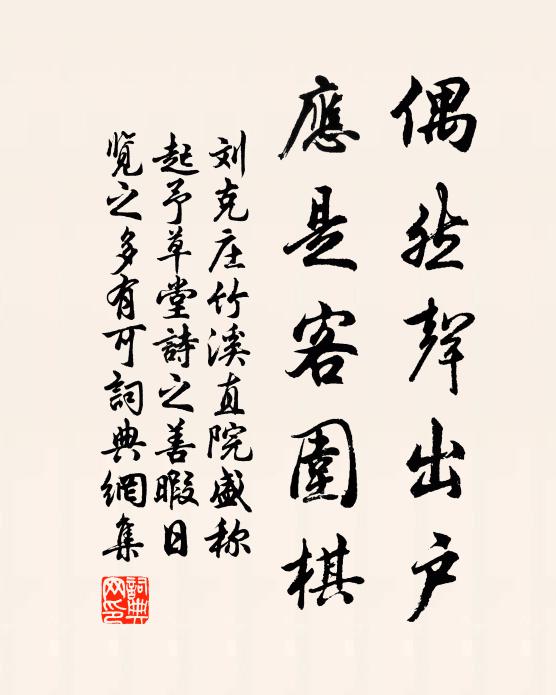 偶然聲出户
應是客圍棋
刘克庄竹溪直院盛称
起予草堂詩之善暇日
覽之多有可詞典網集
詞典網印